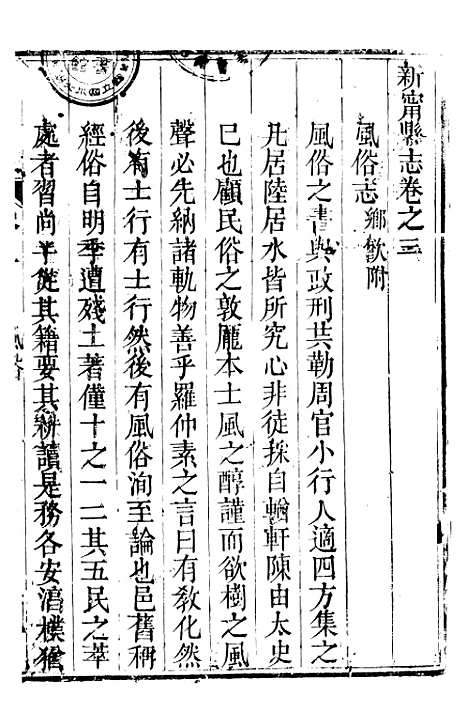 新甯縣志卷之三
風俗志 鄉飲附
風俗之書與政刑共勒周官小行人適四方集之
凡居陸居水皆所究心非徒採自輶軒陳由太史
已也顧民俗之敦龐本士風之醇謹而欲樹之風
聲必先納諸軌物善乎羅仲素之言曰有敎化然
後有士行有士行然後有風俗洵至論也邑舊稱
經俗自明季遭殘土著僅十之一二其五民之萃
處者習尚半從其籍要其耕讀是務各安渾樸猶